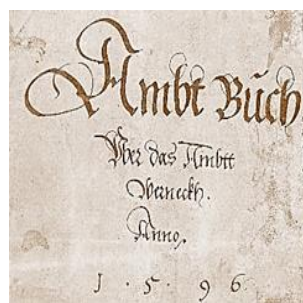 Ambt Buch
Vber das Ambtt
Werneckh.
Anno.
1 · 5 · 9 6